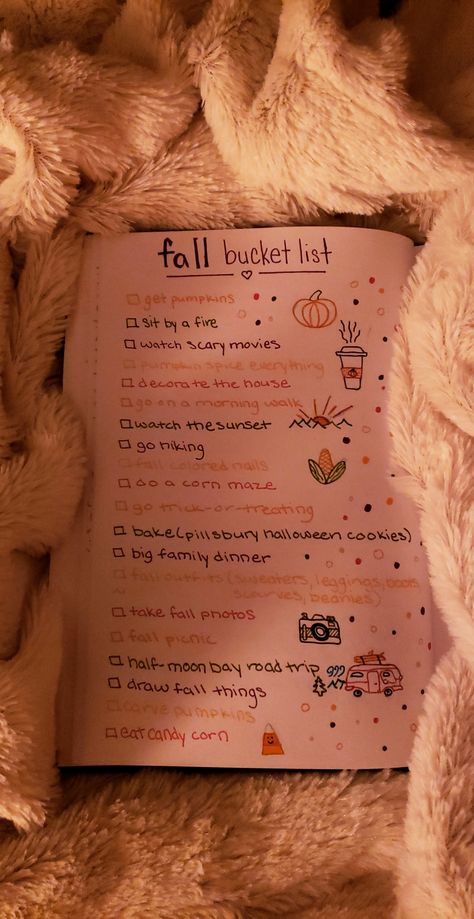 fall bucket list
get pumpkins
sit by a fire
watch scary movies
pumpkin spice everything
decorate the house
go on a morning walk
watch the sunset
go hiking
fall colored nails
do a corn maze
go trick-or-treating
bake (pillsbury halloween cookies)
big family dinner
fall outfits (sweaters, leggings, boots,
scarves, beanies)
take fall photos
fall picnic
half-moon bay road trip
draw fall things
carve pumpkins
eat candy corn